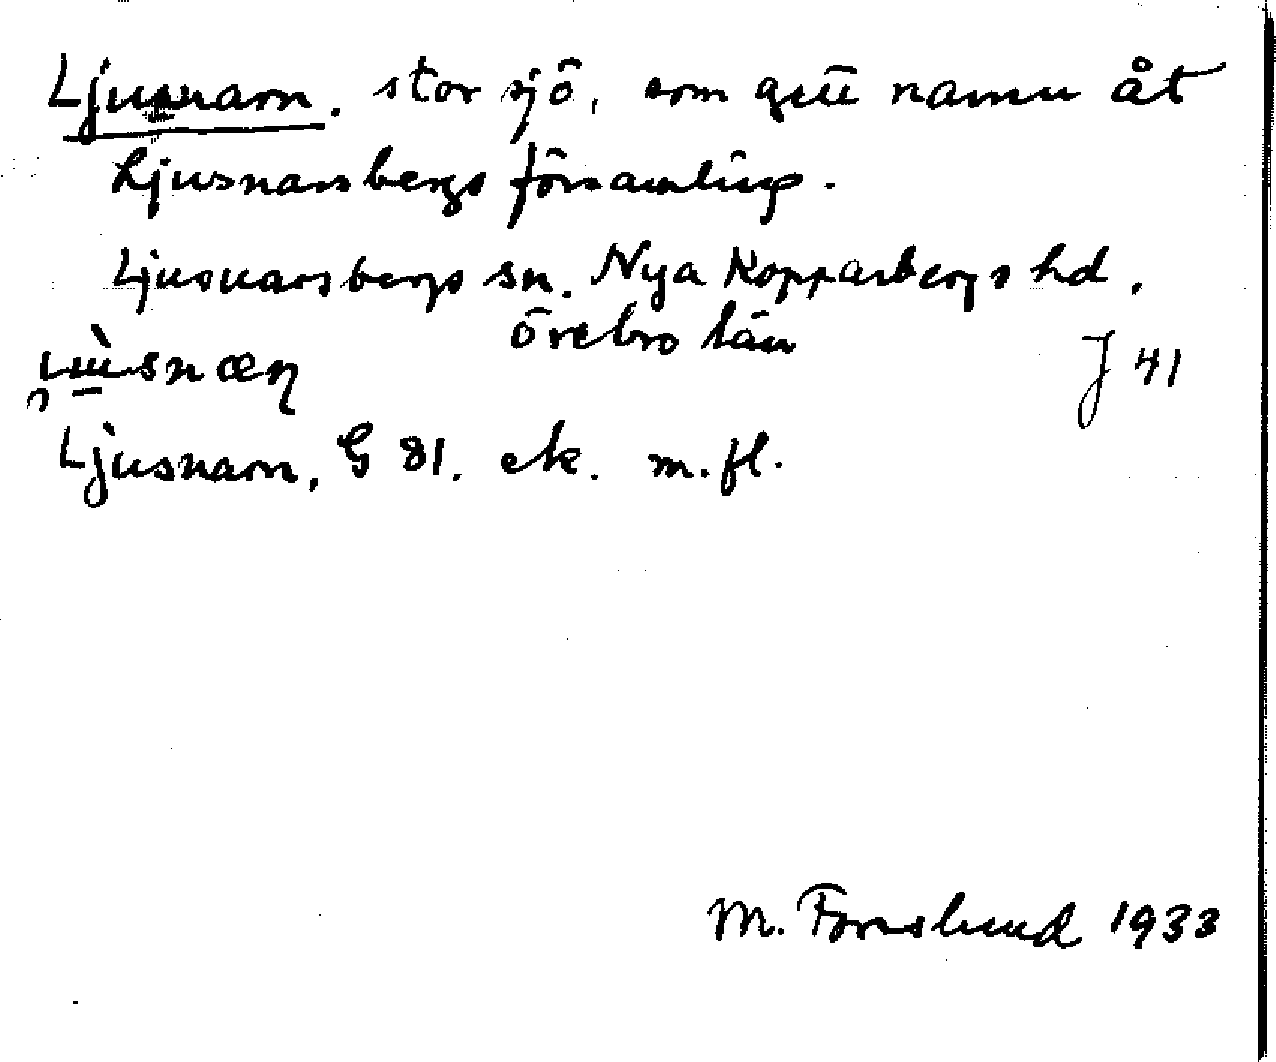 Ljusnarn. stor sjö, som gett namn åt
Ljusnarsbergs församling.
Ljusnarsbergs sn. Nya Kopparbergs hd.
Örebro län
J 41
Ljusnarn, G 81. ek. m.fl.
M. Fornslund 1933